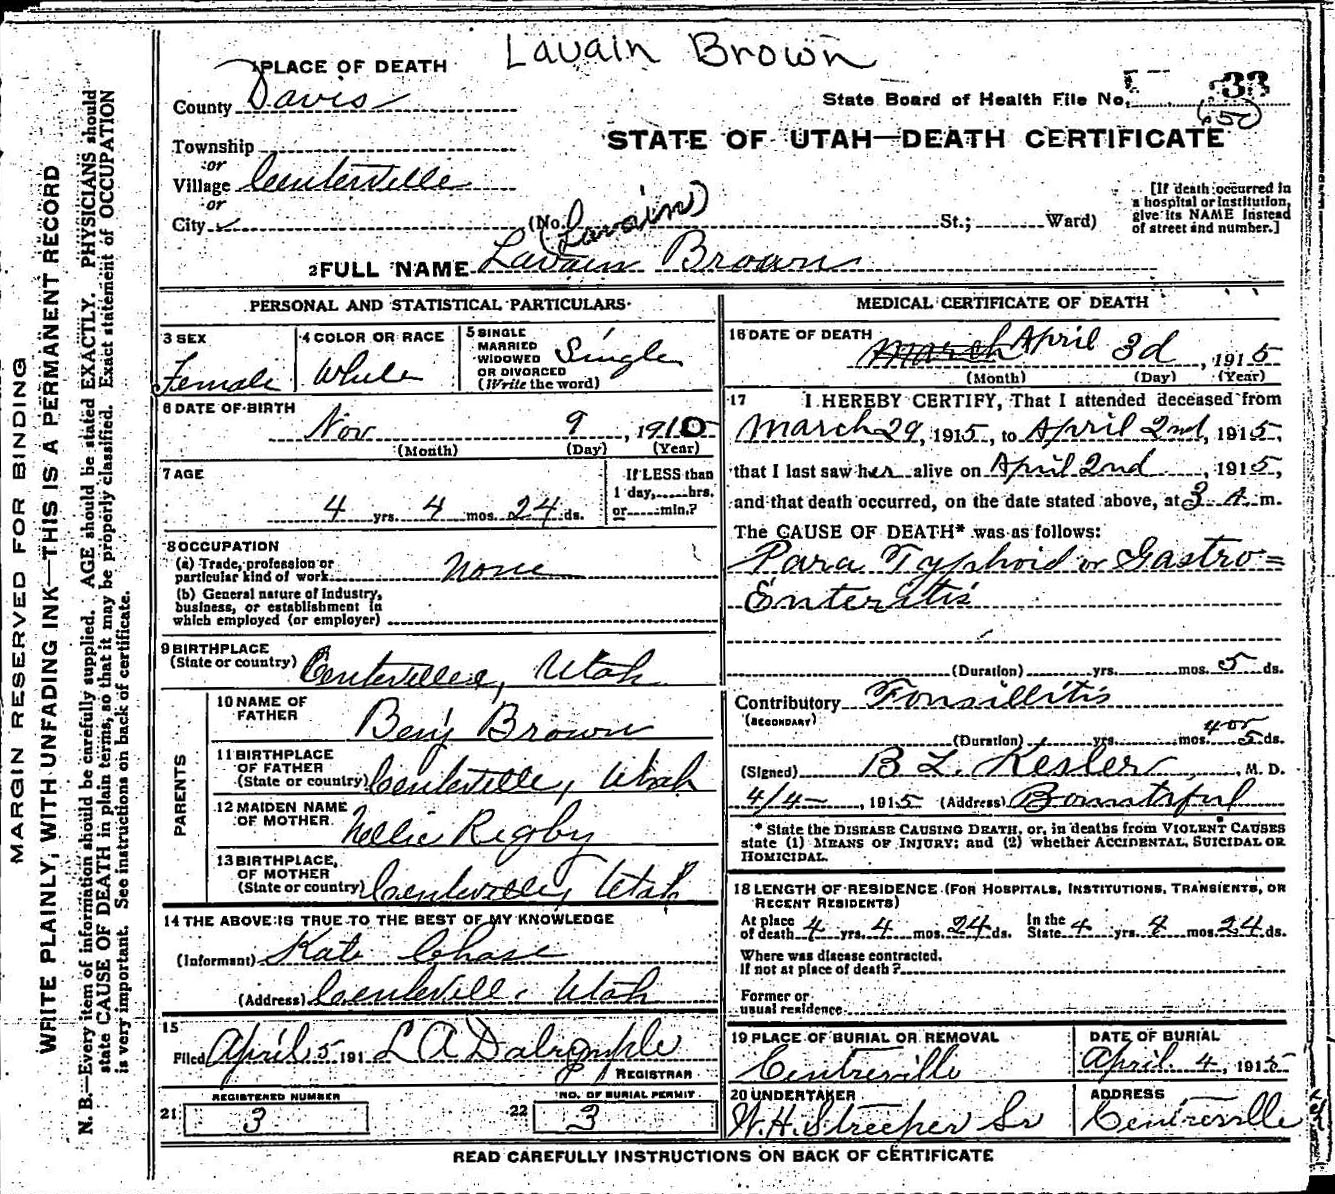 Lavain Brown
1 PLACE OF DEATH
County Davis
State Board of Health File No. 33
(50)
STATE OF UTAH—DEATH CERTIFICATE
Township
or
Village Centerville
or
City
(No. St.; Ward)
(Lavain)
[If death occurred in
a hospital or institution,
give its NAME instead
of street and number.]
2 FULL NAME Lavain Brown
PERSONAL AND STATISTICAL PARTICULARS
3 SEX
Female
4 COLOR OR RACE
White
5 SINGLE
MARRIED
WIDOWED
OR DIVORCED
(Write the word)
Single
6 DATE OF BIRTH
Nov 9, 1910
(Month) (Day) (Year)
7 AGE
4 yrs. 4 mos. 24 ds.
If LESS than
1 day, hrs.
or min.?
8 OCCUPATION
(a) Trade, profession or
particular kind of work None
(b) General nature of industry,
business, or establishment in
which employed (or employer)
9 BIRTHPLACE
(State or country) Centerville, Utah
PARENTS
10 NAME OF
FATHER Benj Brown
11 BIRTHPLACE
OF FATHER
(State or country) Centerville, Utah
12 MAIDEN NAME
OF MOTHER Nellie Rigby
13 BIRTHPLACE
OF MOTHER
(State or country) Centerville, Utah
14 THE ABOVE IS TRUE TO THE BEST OF MY KNOWLEDGE
(Informant) Kate Chase
(Address) Centerville Utah
15
Filed April 5 191 L A Dalrymple
REGISTRAR
21 REGISTERED NUMBER
3
22 NO. OF BURIAL PERMIT
3
MEDICAL CERTIFICATE OF DEATH
16 DATE OF DEATH
March April 3d, 1915
(Month) (Day) (Year)
17 I HEREBY CERTIFY, That I attended deceased from
March 29, 1915, to April 2nd, 1915,
that I last saw her alive on April 2nd, 1915,
and that death occurred, on the date stated above, at 3 A. m.
The CAUSE OF DEATH* was as follows:
Para Typhoid or Gastro=
Enteritis
(Duration) yrs. mos. 5 ds.
Contributory Tonsillitis
(SECONDARY)
(Duration) yrs. mos. 4 or 5 ds.
(Signed) B L. Kesler, M. D.
4/4, 1915 (Address) Bountiful
* State the DISEASE CAUSING DEATH, or, in deaths from VIOLENT CAUSES
state (1) MEANS OF INJURY; and (2) whether ACCIDENTAL, SUICIDAL OR
HOMICIDAL.
18 LENGTH OF RESIDENCE (FOR HOSPITALS, INSTITUTIONS, TRANSIENTS, OR
RECENT RESIDENTS)
At place
of death 4 yrs. 4 mos. 24 ds. In the
State 4 yrs. 4 mos. 24 ds.
Where was disease contracted,
If not at place of death?
Former or
usual residence
19 PLACE OF BURIAL OR REMOVAL
Centreville
DATE OF BURIAL
April 4, 1915
20 UNDERTAKER
W. H. Streeper Sr
ADDRESS
Centreville
READ CAREFULLY INSTRUCTIONS ON BACK OF CERTIFICATE
MARGIN RESERVED FOR BINDING
WRITE PLAINLY, WITH UNFADING INK—THIS IS A PERMANENT RECORD
N. B.—Every item of information should be carefully supplied. AGE should be stated EXACTLY. PHYSICIANS should
state CAUSE OF DEATH in plain terms, so that it may be properly classified. Exact statement of OCCUPATION
is very important. See instructions on back of certificate.